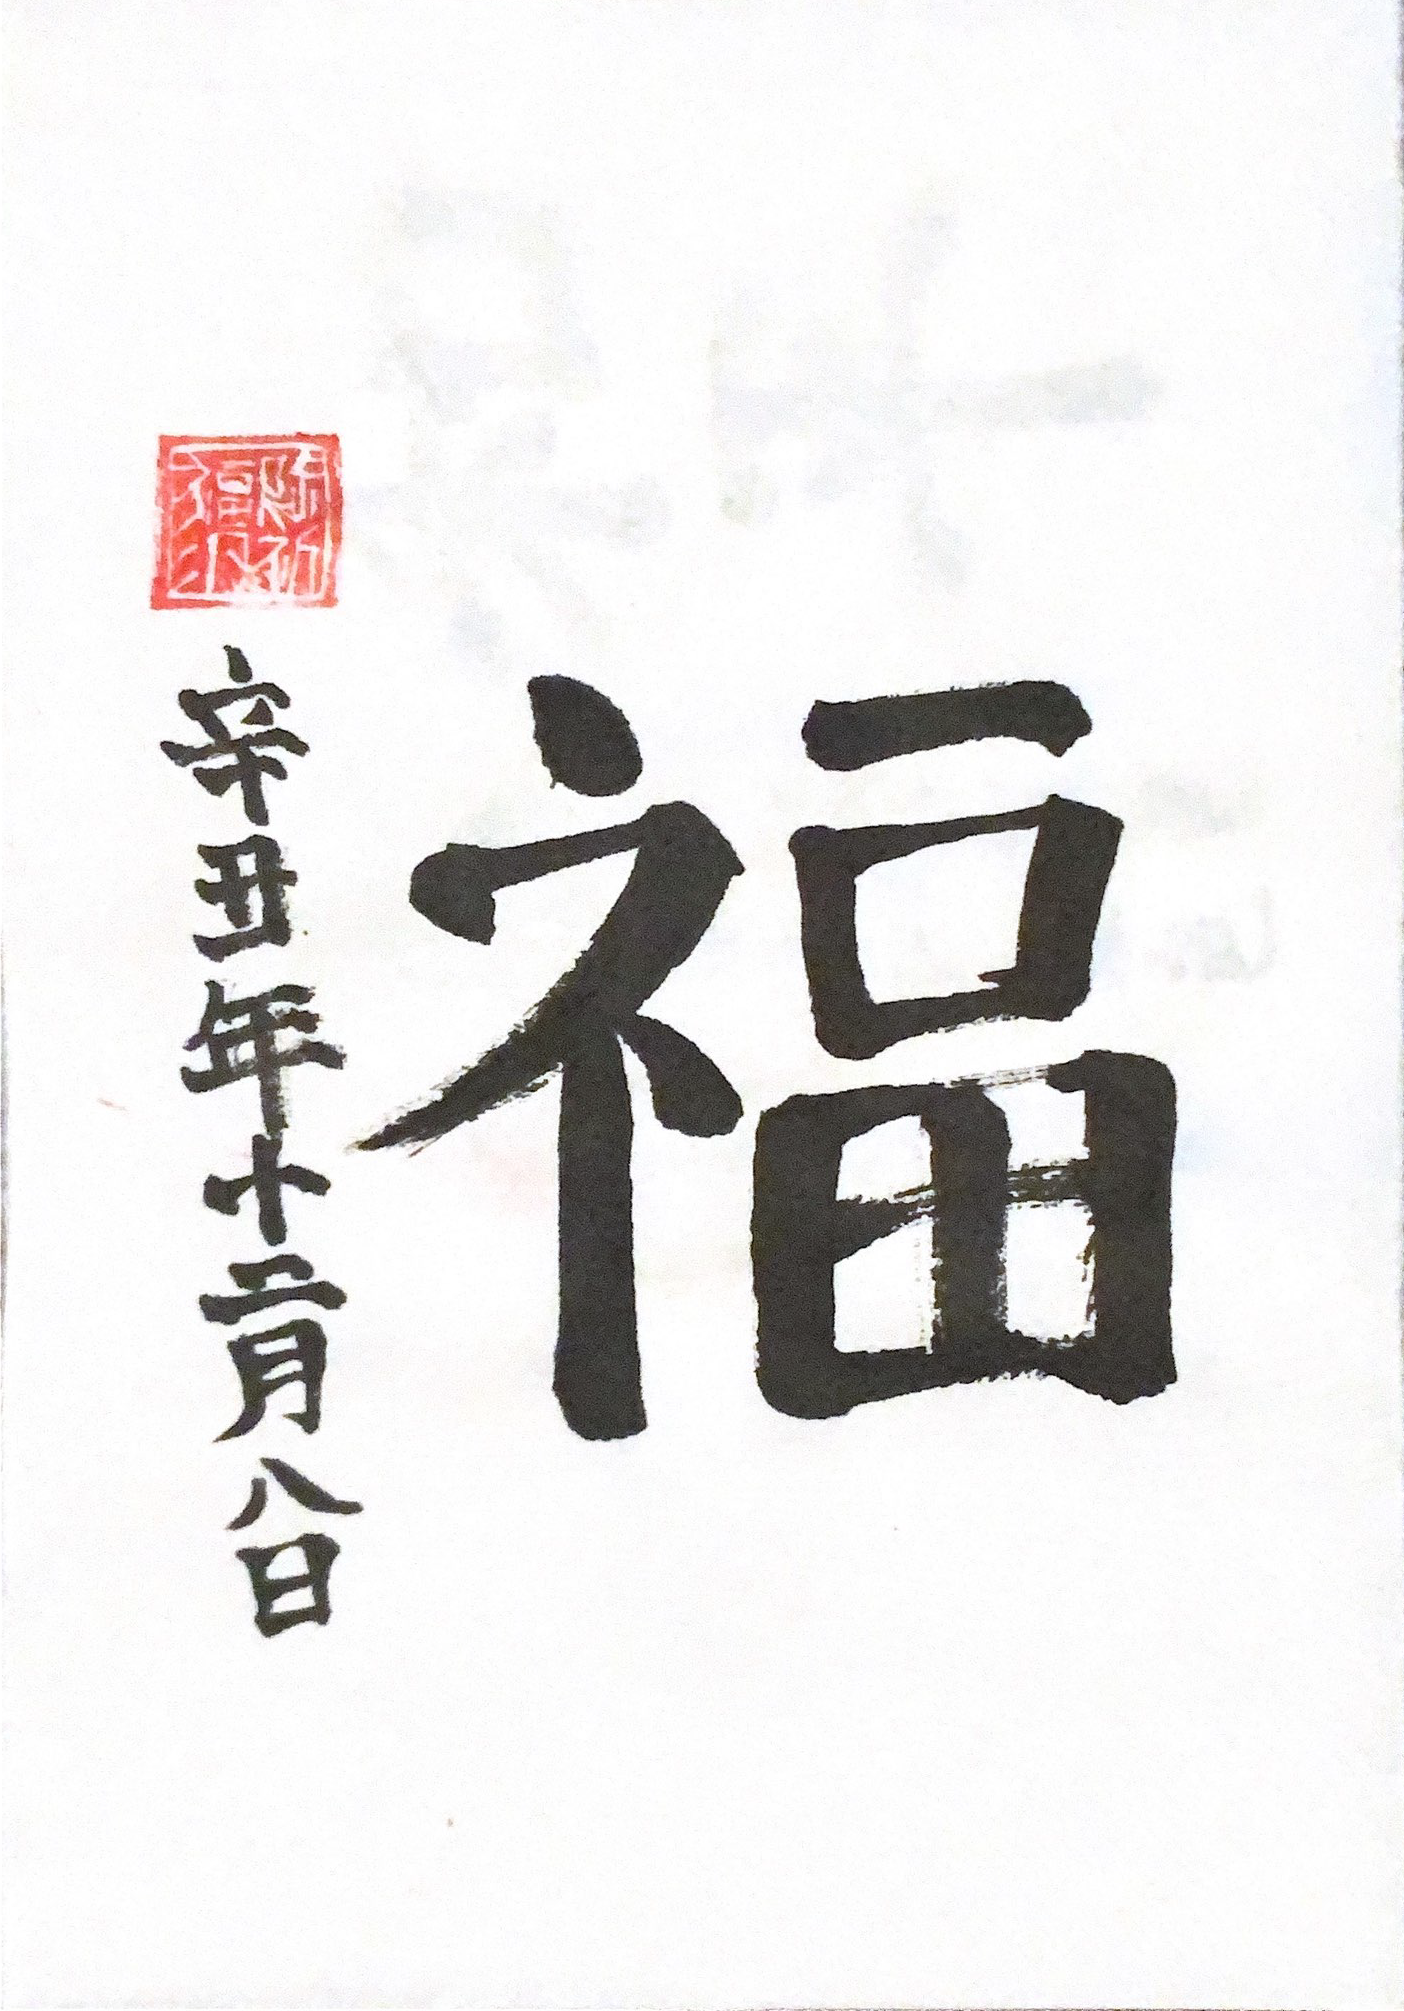 福
辛丑年十二月八日